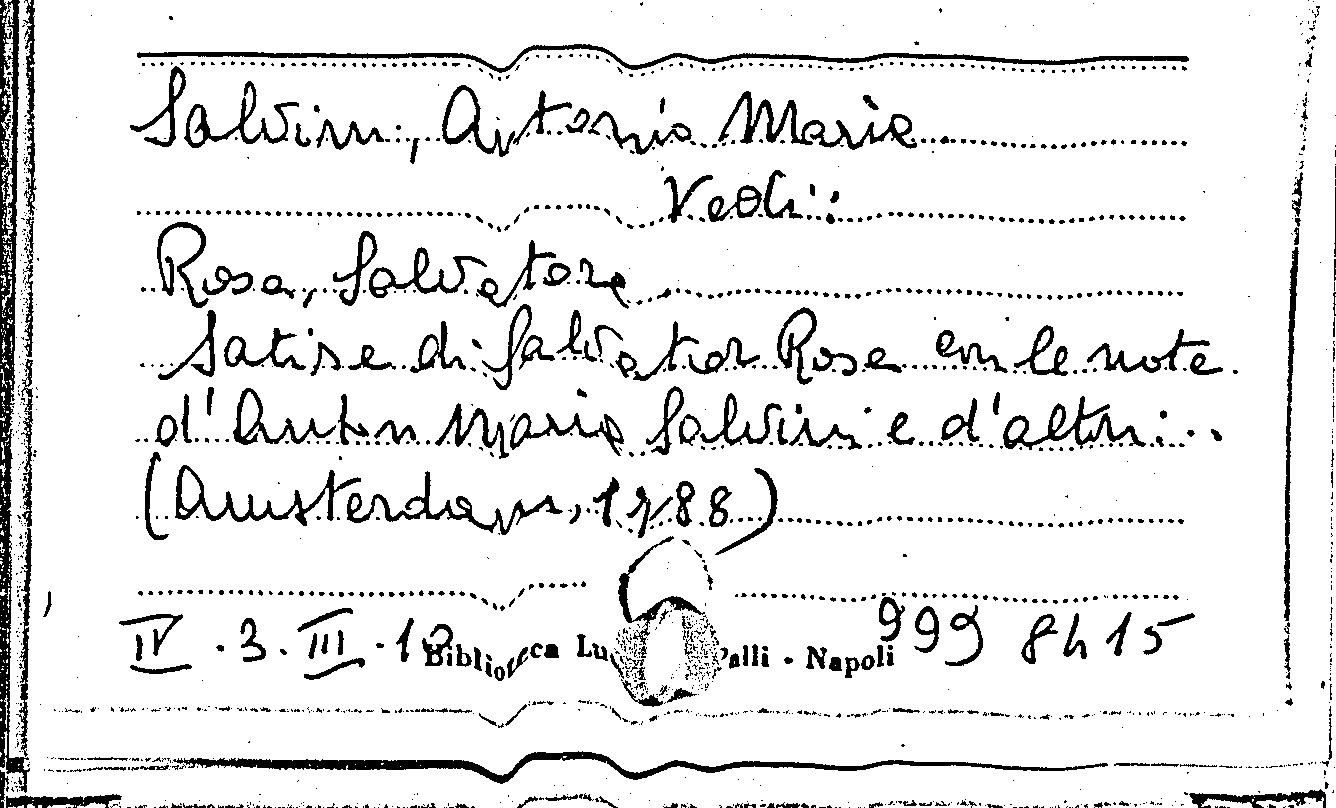 Salvini, Antonio Maria
Vedi:
Rosa, Salvatore
Satire di Salvator Rosa con le note
d'Anton Maria Salvini e d'altri...
(Amsterdam, 1788)
IV.3.III.18 Biblioteca Lu alli - Napoli 999 8h15